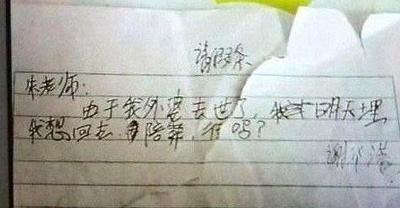 请假条
朱老师:
由于我外婆去世了,明天埋
我想回去陪葬,行吗?
谢